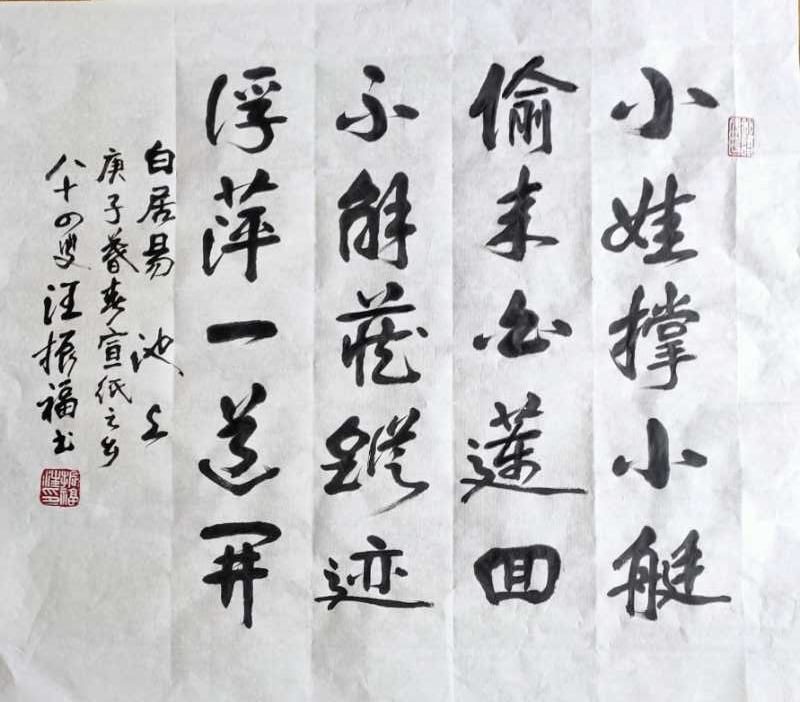 小娃撑小艇
偷来白莲回
不解藏蹤迹
浮萍一道开
白居易 池上
庚子暮春宣纸之乡
八十四叟汪振福书